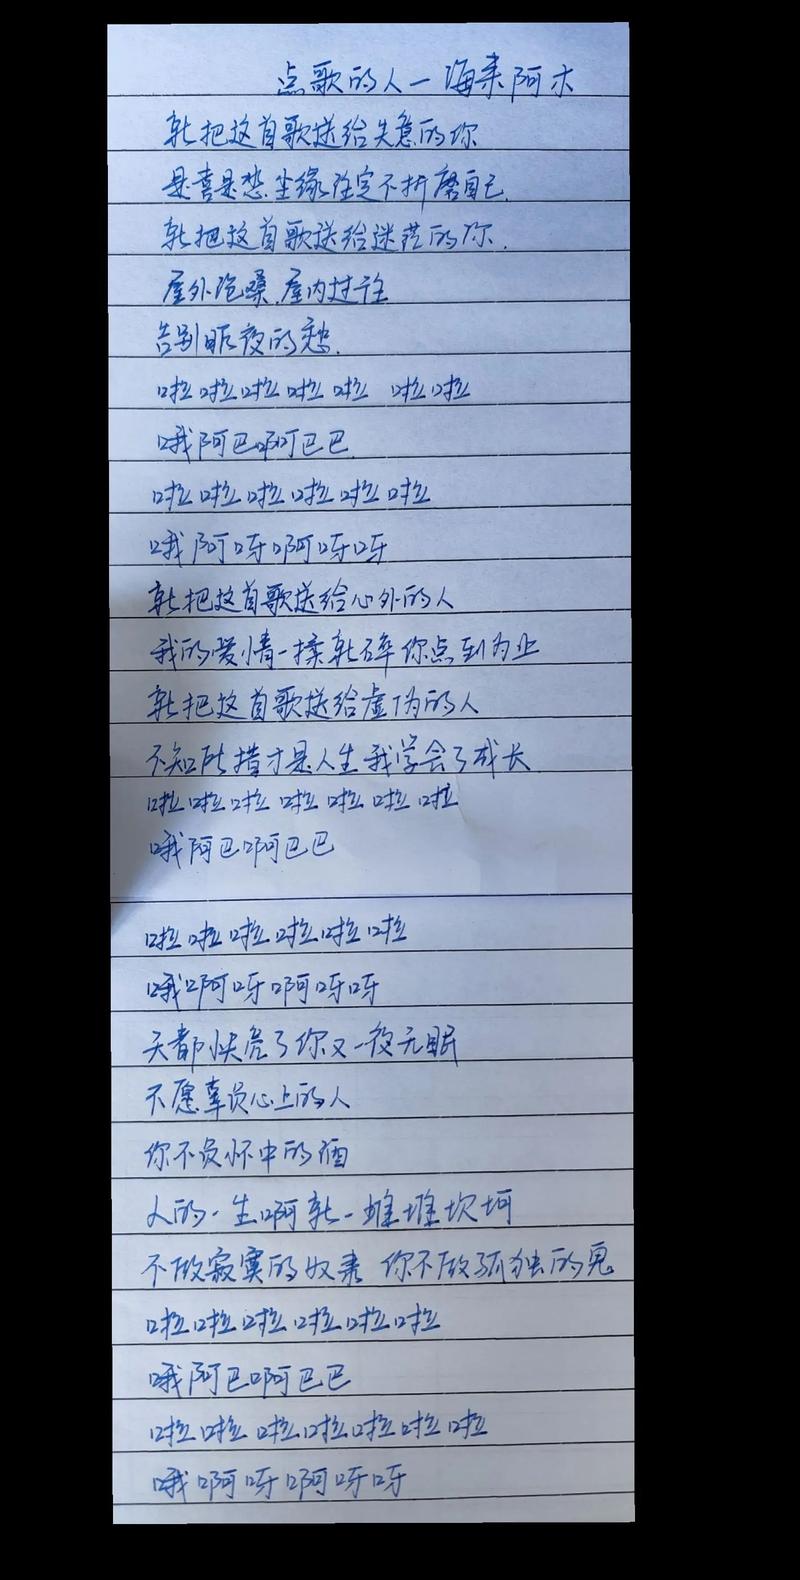 点歌的人一海来阿木
就把这首歌送给失意的你
是喜是悲尘缘注定不折磨自己.
就把这首歌送给迷茫的你.
屋外沧桑.屋内过往
告别昨夜的愁.
啦啦啦啦啦 啦啦
哦阿巴啊巴巴
啦啦啦啦啦啦
哦阿呀啊呀呀
就把这首歌送给心外的人
我的爱情一揉就碎你点到为止
就把这首歌送给虚伪的人
不知所措才是人生我学会了成长
啦啦啦啦啦啦啦
哦阿巴啊巴巴
啦啦啦啦啦啦
哦啊呀啊呀呀
天都快亮了你又一夜无眠
不愿辜负心上的人
你不负怀中的酒
人的一生啊就一堆堆坎坷
不做寂寞的奴隶 你不做孤独的鬼
啦啦啦啦啦啦
哦阿巴啊巴巴
啦啦啦啦啦啦啦
哦啊呀啊呀呀